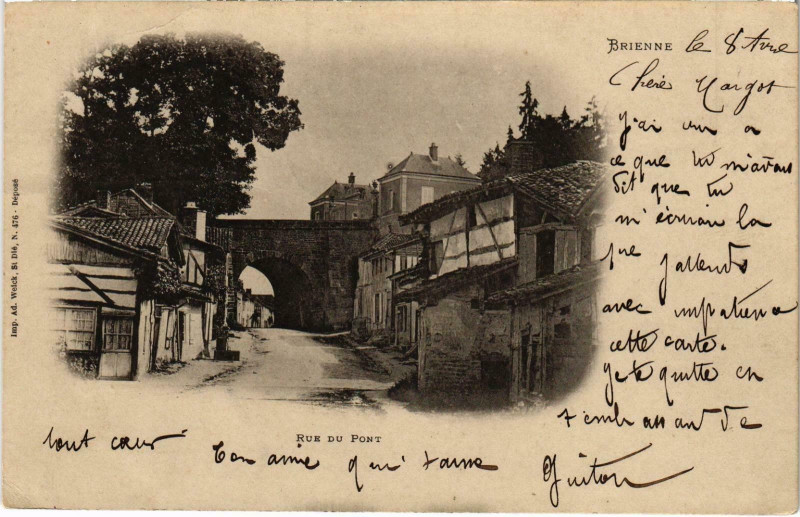 BRIENNE le 8 Avril
Chère Margot
J'ai vu a
ce que tu m'avais
dit que tu
m'écrirais la
que j'attends
avec impatience
cette carte.
Je te quitte en
t'embrassant de
tout cœur
Ton amie qui t'aime
Guiton
RUE DU PONT
Imp. Ad. Weick, St Dié, N. 476 - Déposé